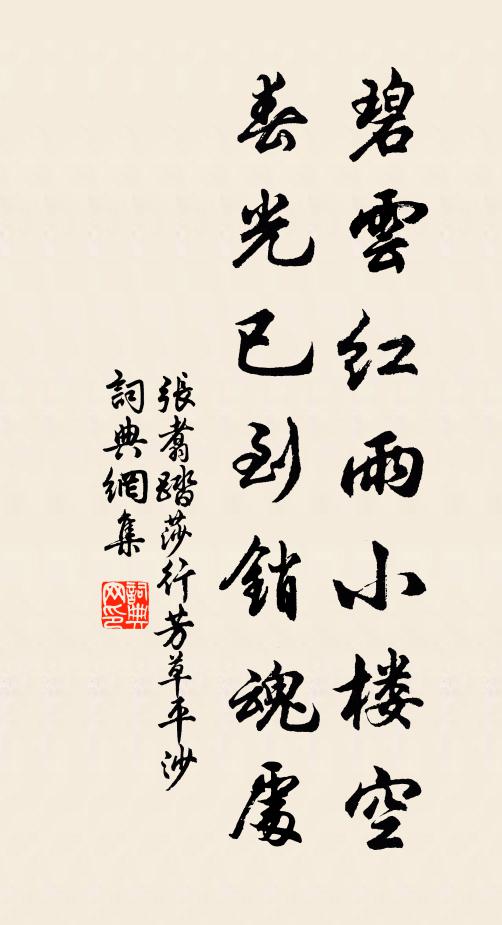 碧雲紅雨小楼空
春光已到銷魂處
張翥踏莎行芳草平沙
詞典網集
詞典网印